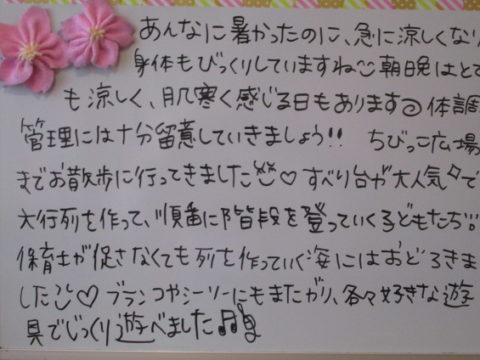 あんなに暑かったのに、急に涼しくなり
身体もびっくりしていますね 朝晩はとて
も涼しく、肌寒く感じる日もあります 体調
管理には十分留意していきましょう!! ちびっこ広場
までお散歩に行ってきました♡ すべり台が大人気で
大行列を作って、順番に階段を登っていく子どもたち!!
保育士が促さなくても列を作っていく姿にはおどろきま
した♡ ブランコやシーソーにもまたがり、各々好きな遊
具でじっくり遊べました♫